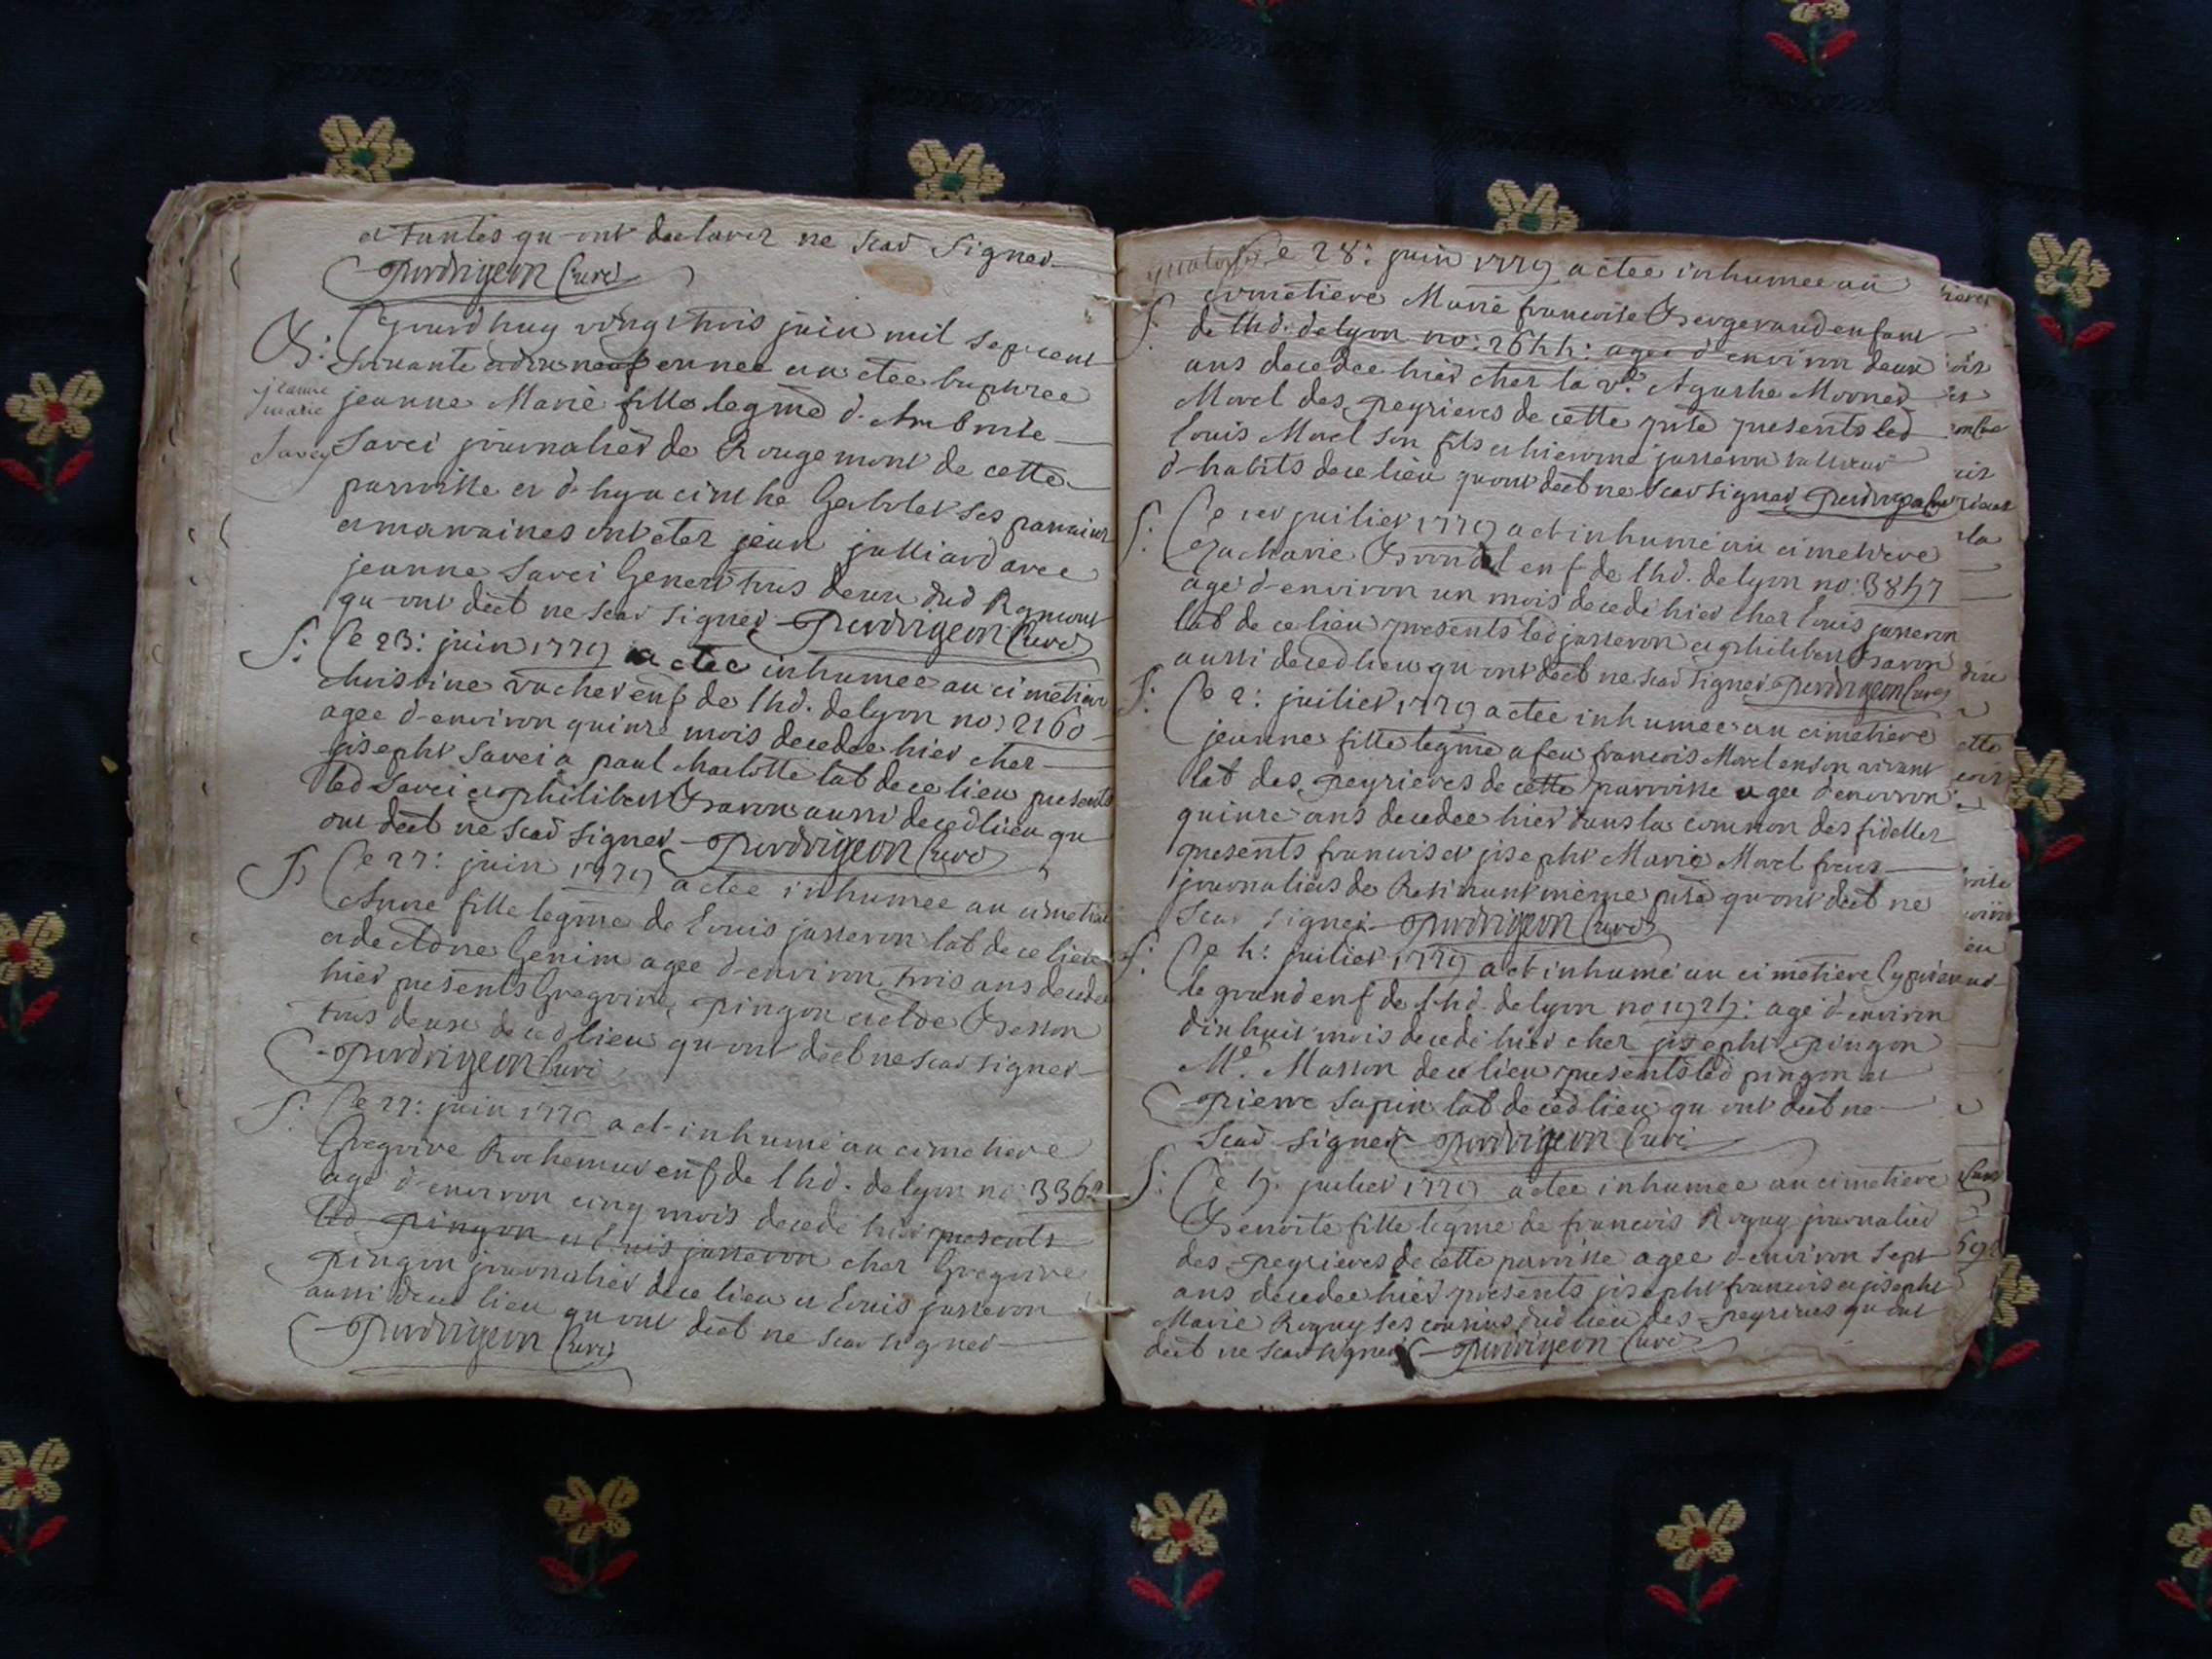 et tantes qu-ont declarer ne scav signer
Perdrigeon Curé
B: Cejourdhuy vingt trois juin mil sept cent
soixante et dix neuf ennee a etee baptisee
jeanne marie Savey
jeanne Marie fille legme d. Ambroise
Savei journalier de Rougemont de cette
parroisse et d-hyacinthe Gabolet ses parrain
et marraines ont eter jean julliard avec
jeanne Savei tous deux dud Rgmont
qu-ont declt ne scav signer Perdrigeon Curé
S: Ce 23: juin 1779 a etee inhumee au cimetiere
christine vacher enf de lhd. delyon no: 2160
agee d-environ quinze mois decedee hier chez
joseph Savei a paul charlotte lab de ce lieu presents
led Savei et philibert Bavon aussi decedlieu qu
ont declt ne scav signer Perdrigeon Curé
S: Ce 27: juin 1779 a etee inhumee au cimetiere
Anne fille legme de Louis jasseron lab de ce lieu
et de Genim agee d-environ trois ans decedee
hier presents Gregoire pingon et Besson
tous deux decedlieu qu ont declt ne scav signer
Perdrigeon Curé
S: Ce 27: juin 1779 a et-inhumé au cimetiere
Gregoire Rochemur enf de lhd. delyon no: 3362
agé d-environ cinq mois decedé hier presents
led pingon et Louis jasseron chez Gregoire
pingon journalier de ce lieu et Louis jasseron
aussi deced lieu qu ont declt ne scav signer
Perdrigeon Curé
quatorse Ce 28: juin 1779 a etee inhumee au
S: cimetiere Marie francoise Bergeraud enfant
de lhd. delyon no: 2644: agee d'environ deux
ans decedee hier chez la ve. Agathe Monned
Morel des peyrieres de cette psse presents led
Louis Morel son fils et hierome jasseron tailleur
d-habits de ce lieu qu ont declt ne scav signer Perdrigeon Curé
S: Ce 1er juiliet 1779 a et inhumé au cimetiere
Zacharie Brondel enf de lhd. delyon no: 3847
agé d-environ un mois decedé hier chez Louis jasseron
lab de ce lieu presents led jasseron et philibert Bavon
aussi decedlieu qu ont declt ne scav signer Perdrigeon Curé
S: Ce 2: juiliet 1779 a etee inhumee au cimetiere
jeanne fille legme a feu francois Morel en son vivant
lab des peyrieres de cette parroisse agee d'environ
quinze ans decedee hier dans la common des fidelles
presents francois et joseph Marie Morel freres
journaliers de Resimont même psse qu ont declt ne
scav signer Perdrigeon Curé
S: Ce 4: juiliet 1779 a et inhumé au cimetiere Cyprien
le grand enf de lhd. delyon no 1924: agé d-environ
dix huit mois decedé hier chez joseph pingon
Me. Masson de ce lieu presents led pingon et
pierre Sapin lab de ced lieu qu ont declt ne
scav signer Perdrigeon Curé
S: Ce 4. juiliet 1779 a etee inhumee au cimetiere
Benoite fille legme de francois Roguy journalier
des peyrieres de cette parroisse agee d-environ sept
ans decedee hier presents joseph francois et joseph
Marie Roguy ses cousins dud lieu des peyrieres qu ont
declt ne scav signer Perdrigeon Curé